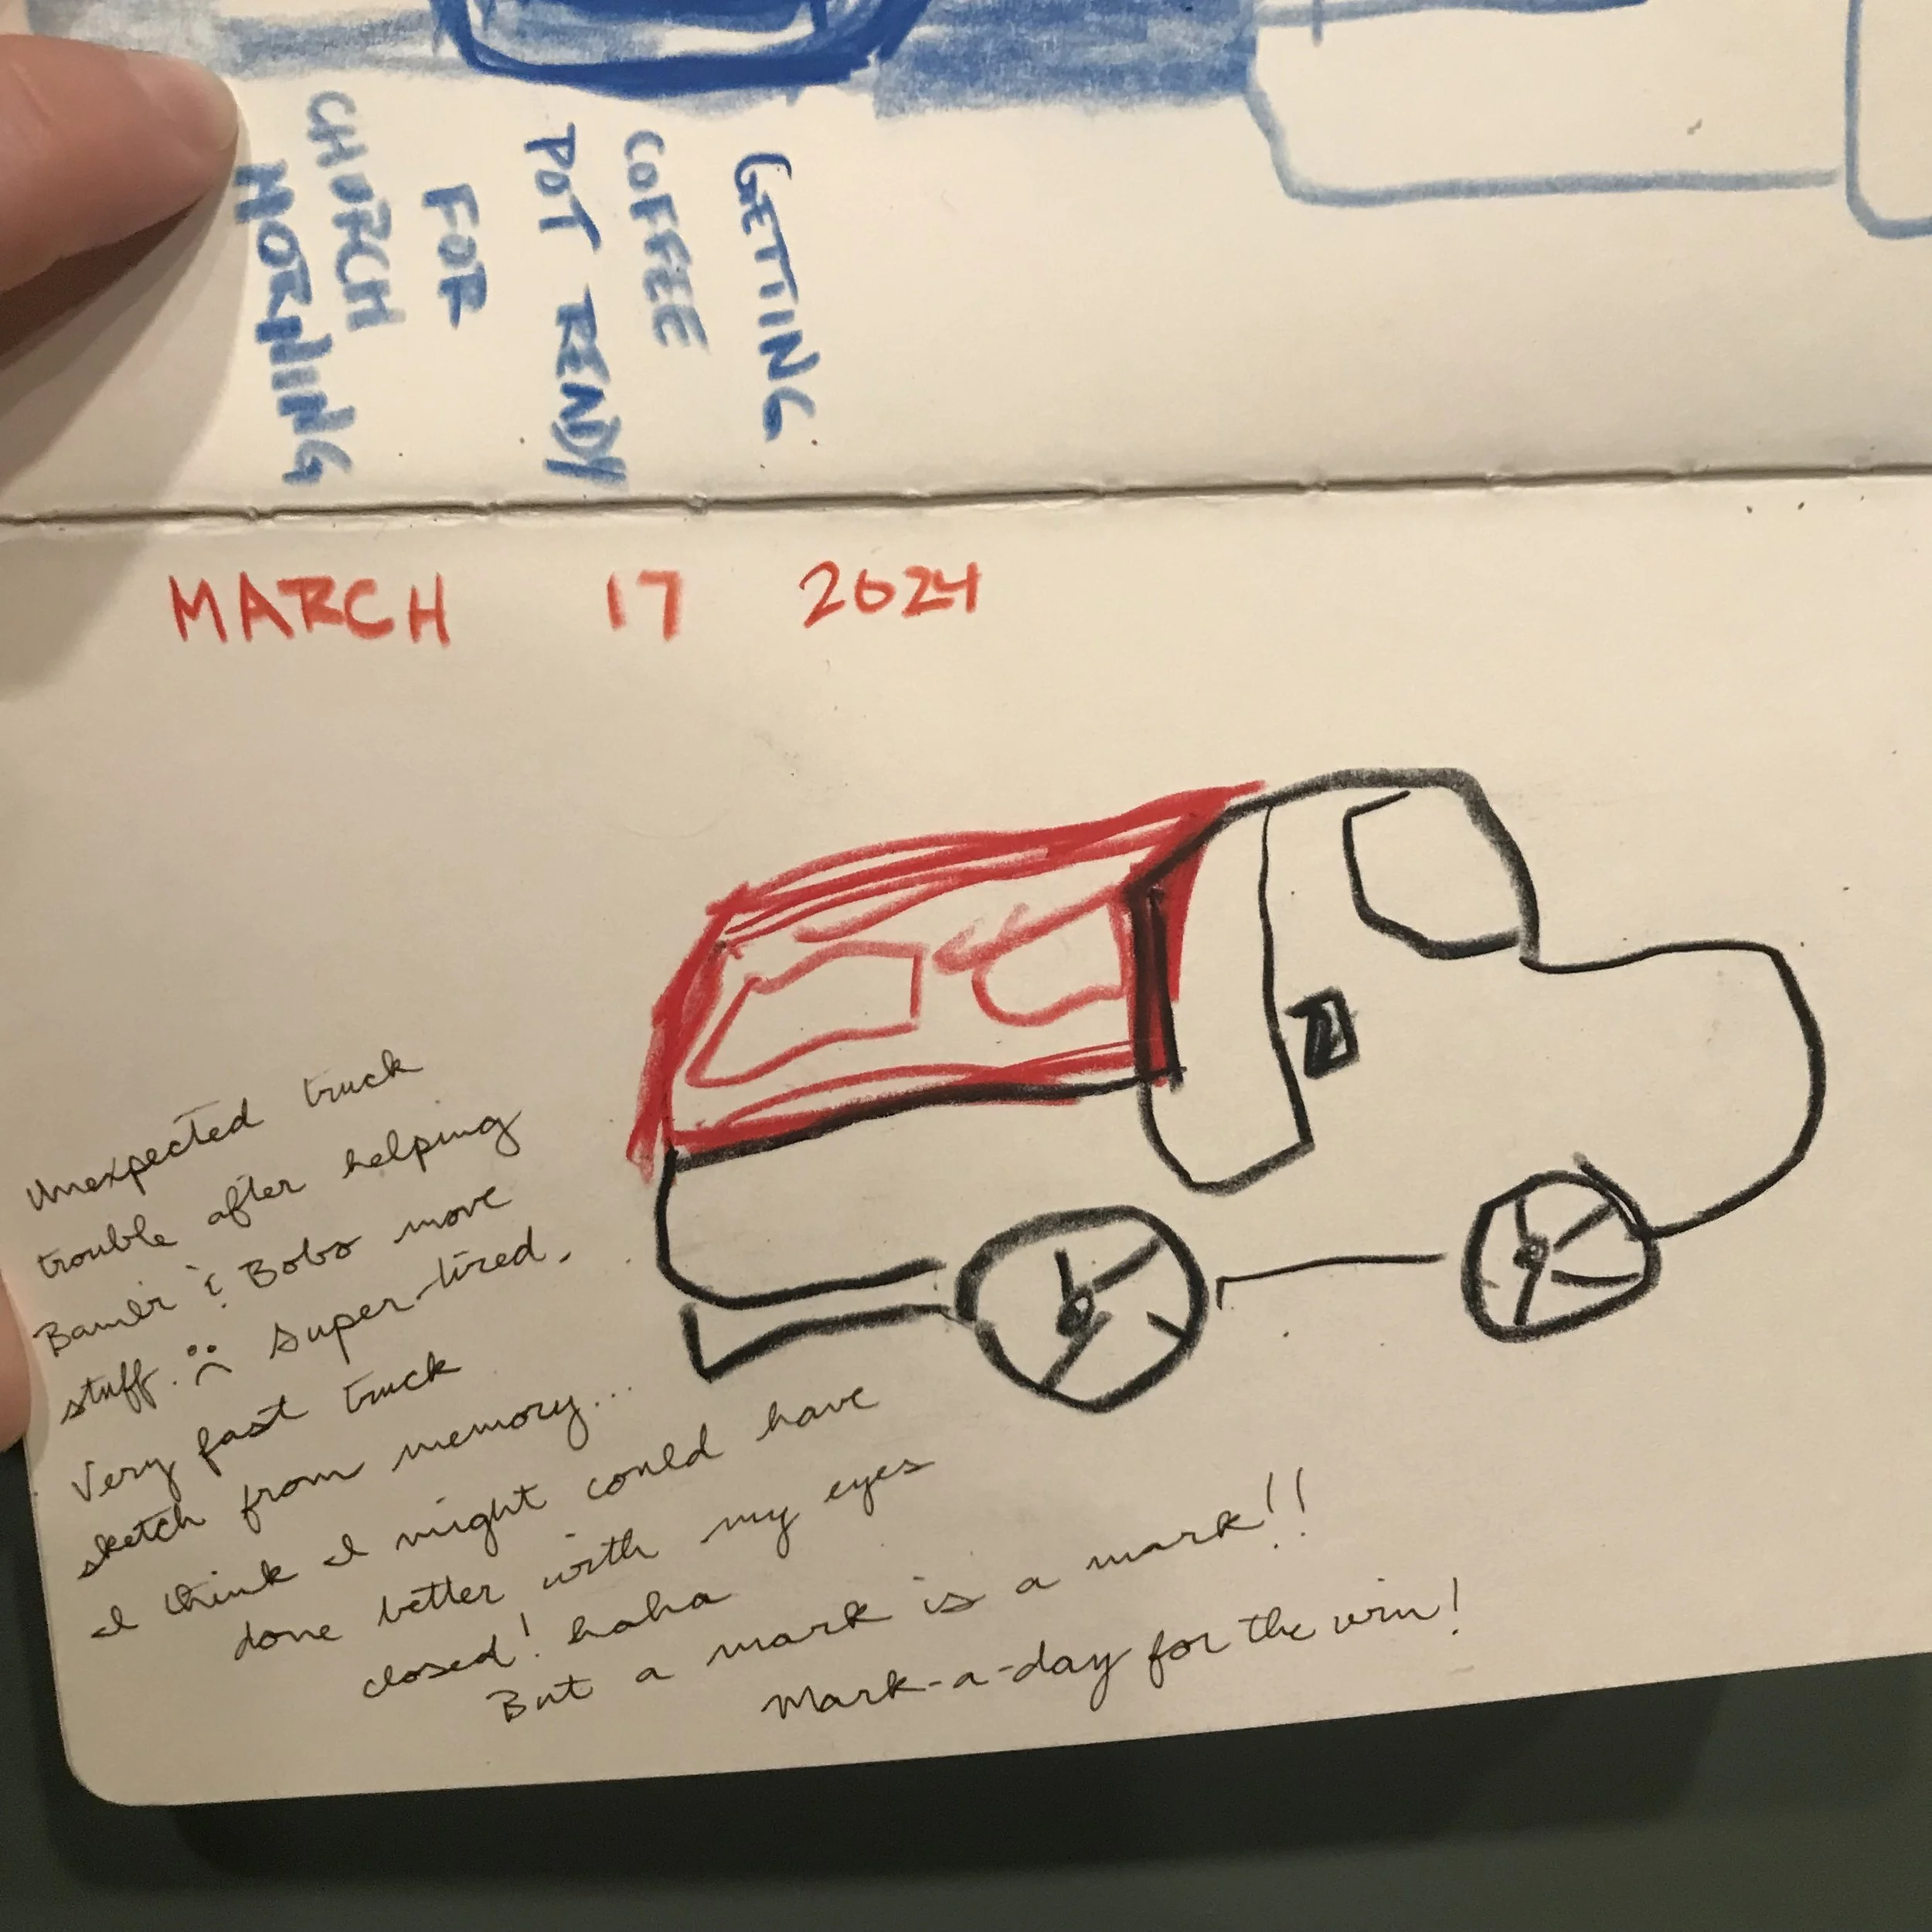 GETTING
COFFEE
POT READY
FOR
CHURCH
MORNING
MARCH 17 2024
Unexpected truck
trouble after helping
& Bobo move
stuff. :( Super-tired.
Very fast truck
sketch from memory...
I think I might could have
done better with my eyes
closed! haha
But a mark is a mark!!
Mark-a-day for the win!